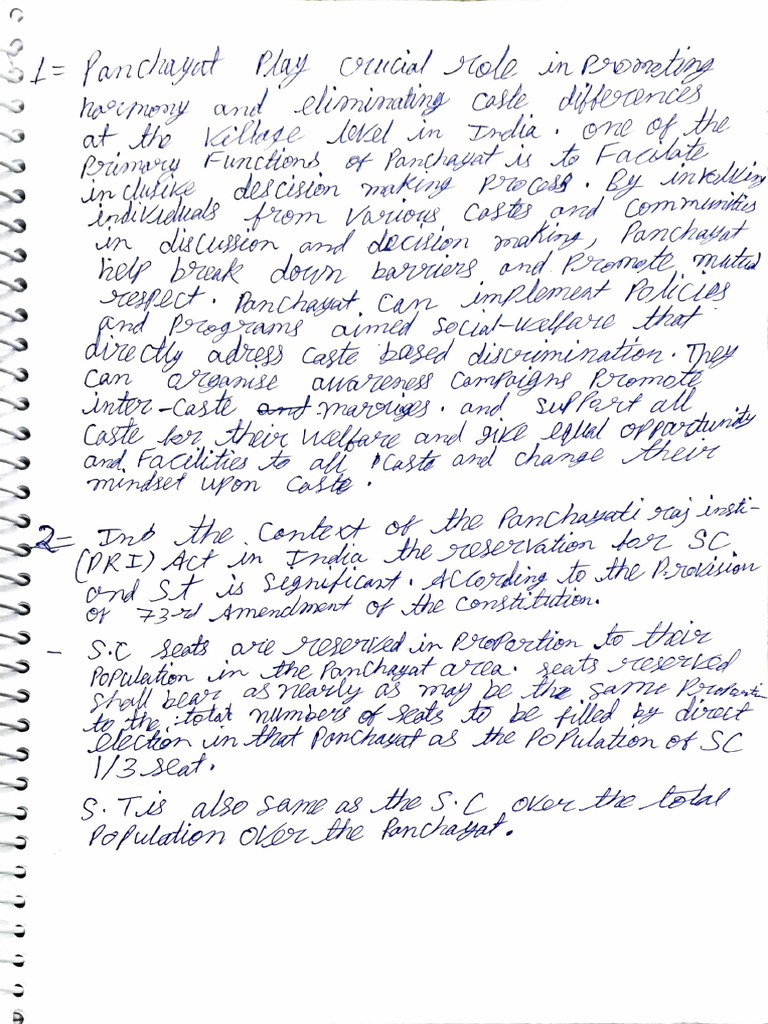 1= Panchayat Play crucial role in Promoting
harmony and eliminating caste differences
at the village level in India. one of the
Primary Functions of Panchayat is to Facilate
inclusike descision making Process. By involvin
individuals from various castes and communities
in discussion and decision making, Panchayat
help break down barriers and Promote mutul
respect. Panchayat can implement Policies
and Programs aimed social-welfare that
directly adress caste based discrimination. They
can organise awareness campaigns Promote
inter-caste and marriges. and support all
caste for their welfare and give equal opportunity
and Facilities to all caste and change their
mindset upon caste.
2= In the Context of the Panchayati raj insti-
(PRI) Act in India the reservation for SC
and St is significant. According to the Provision
of 73rd Amendment of the constitution.
- S.C seats are reserved in Proportion to their
Population in the Panchayat area. seats reserved
shall bear as nearly as may be the same Proporti
to the total numbers of seats to be filled by direct
election in that Panchayat as the Population of SC
1/3 seat.
S.T is also same as the S.C over the total
Population over the Panchayat.